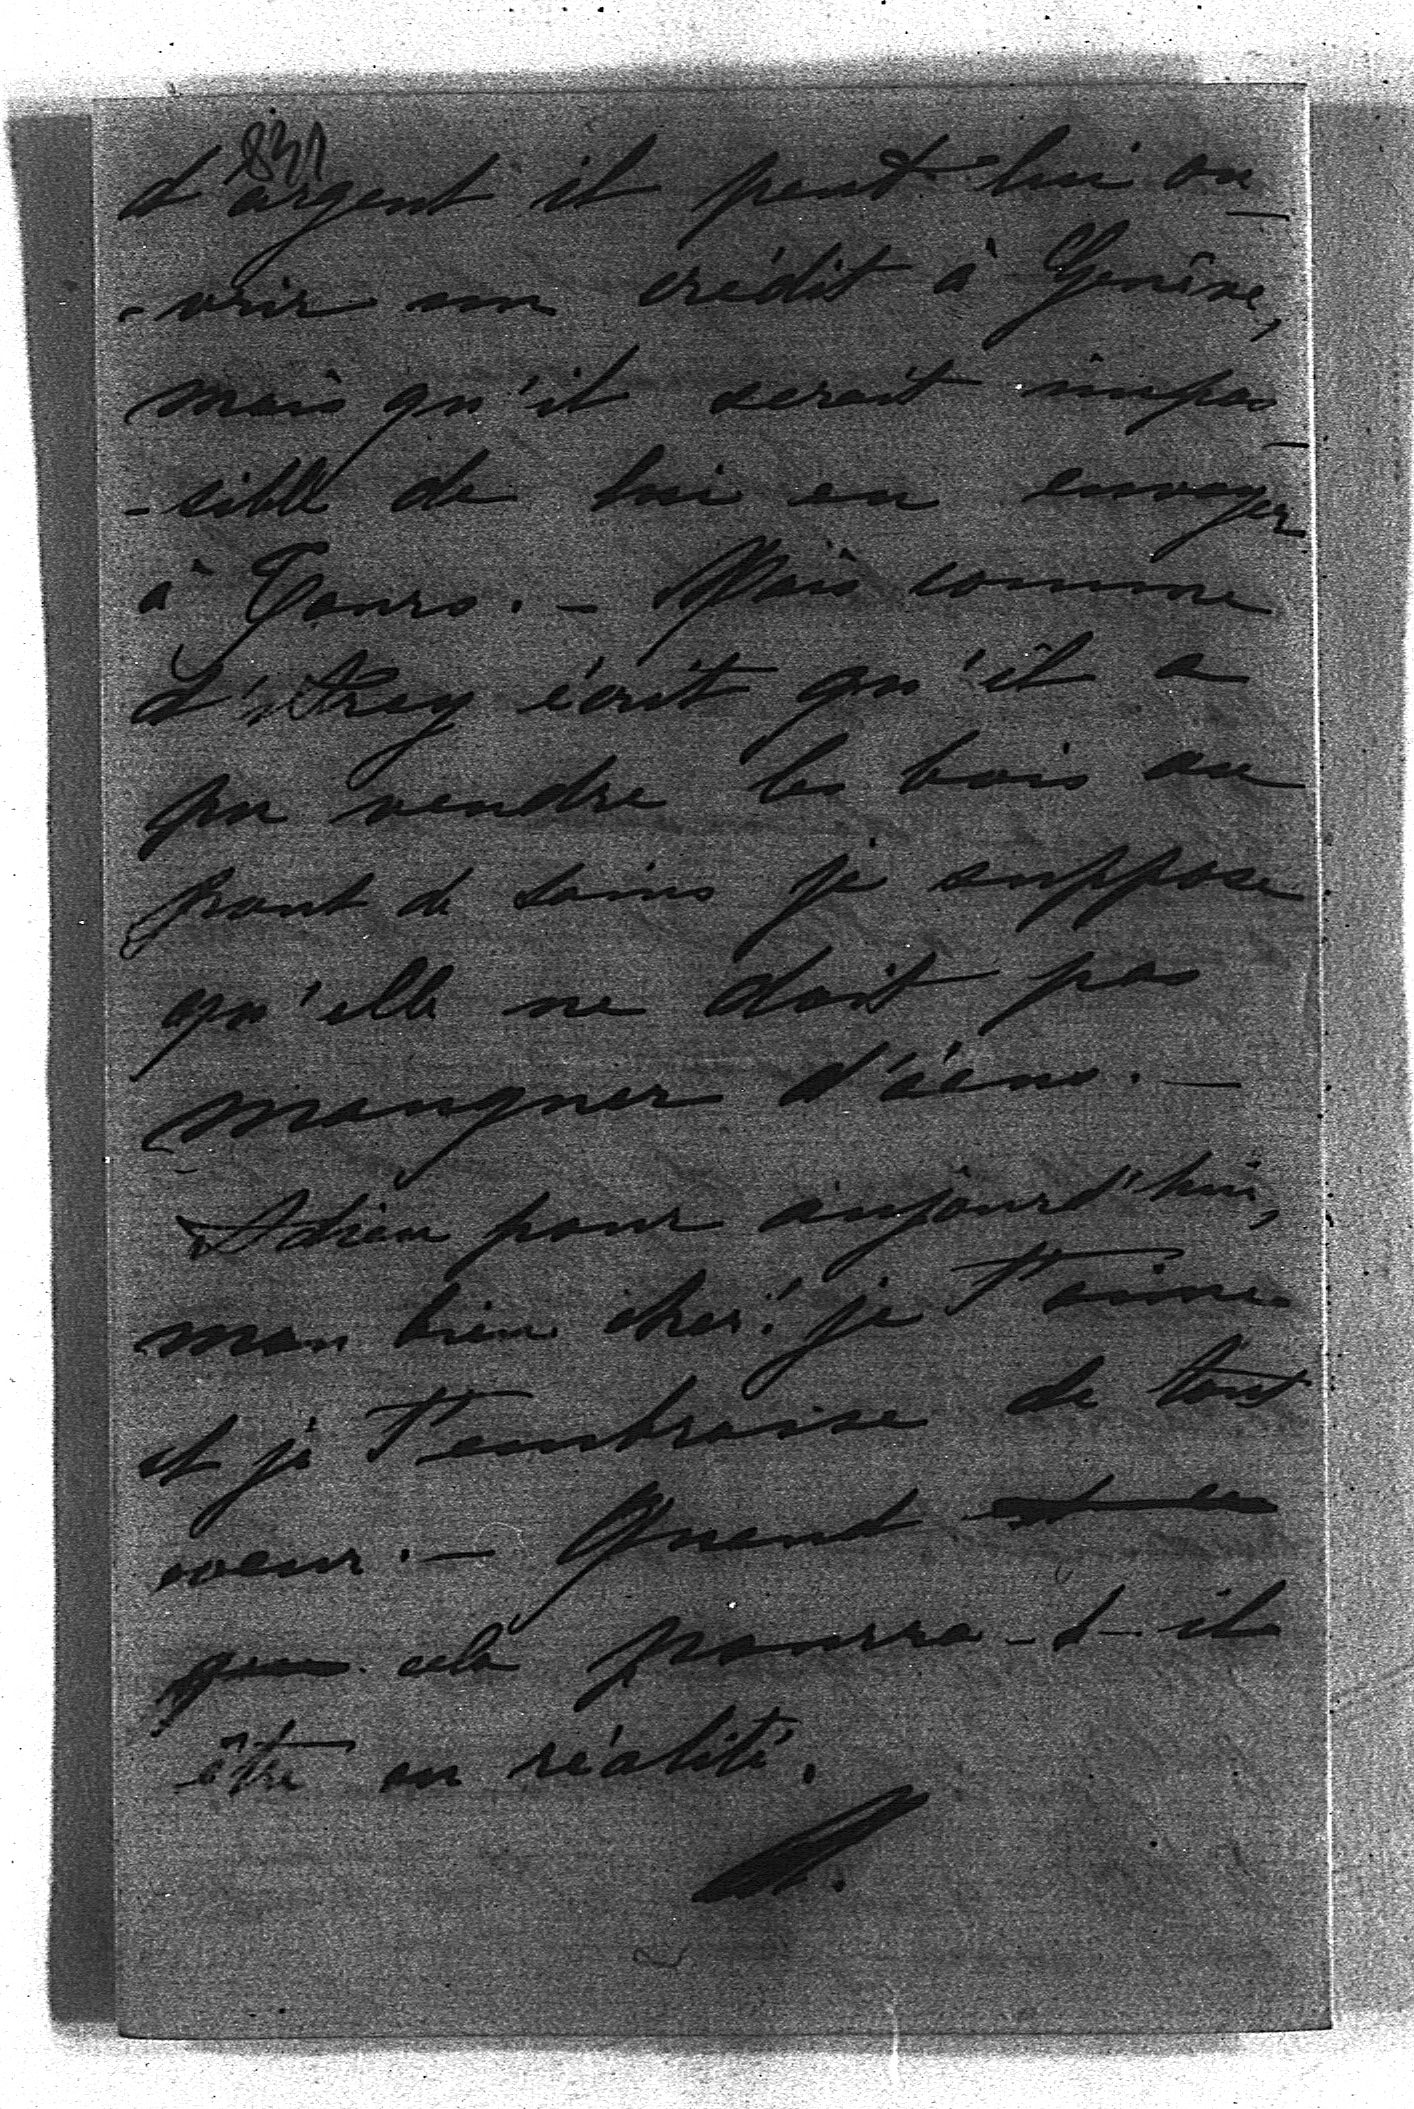 831
d'argent il peut lui ou-
-vrir un crédit à Genêve,
mais qu'il serait impos-
-sible de lui en envoyer
à Tours. — Mais comme
d'Arey écrit qu'il a
pu vendre les bois au
front de Sains je suppose
qu'elle ne doit pas
manquer d'écus. —
Adieu pour aujourd'hui,
mon bien cher! je t'aime
et je t'embrasse de tout
coeur. — Quand est ce
que cela pourra-t-il
être en réalité.